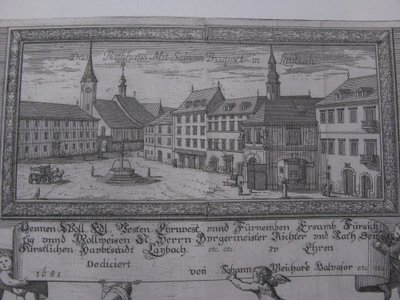 Das Rathaus Mit Seinem Prospect in Laybach.
Denen Woll Edl. Vesten, Ehrnvest, unnd Fürnemben Ersamb Fürsich
tig unnd Wollweisen N. Herrn Burgermeister Richter und Rath der
Fürstlichen Haubtstadt Laybach. etc. etc. zu Ehren
Dediciert
1681 von Johann Weichard Valvasor etc etc